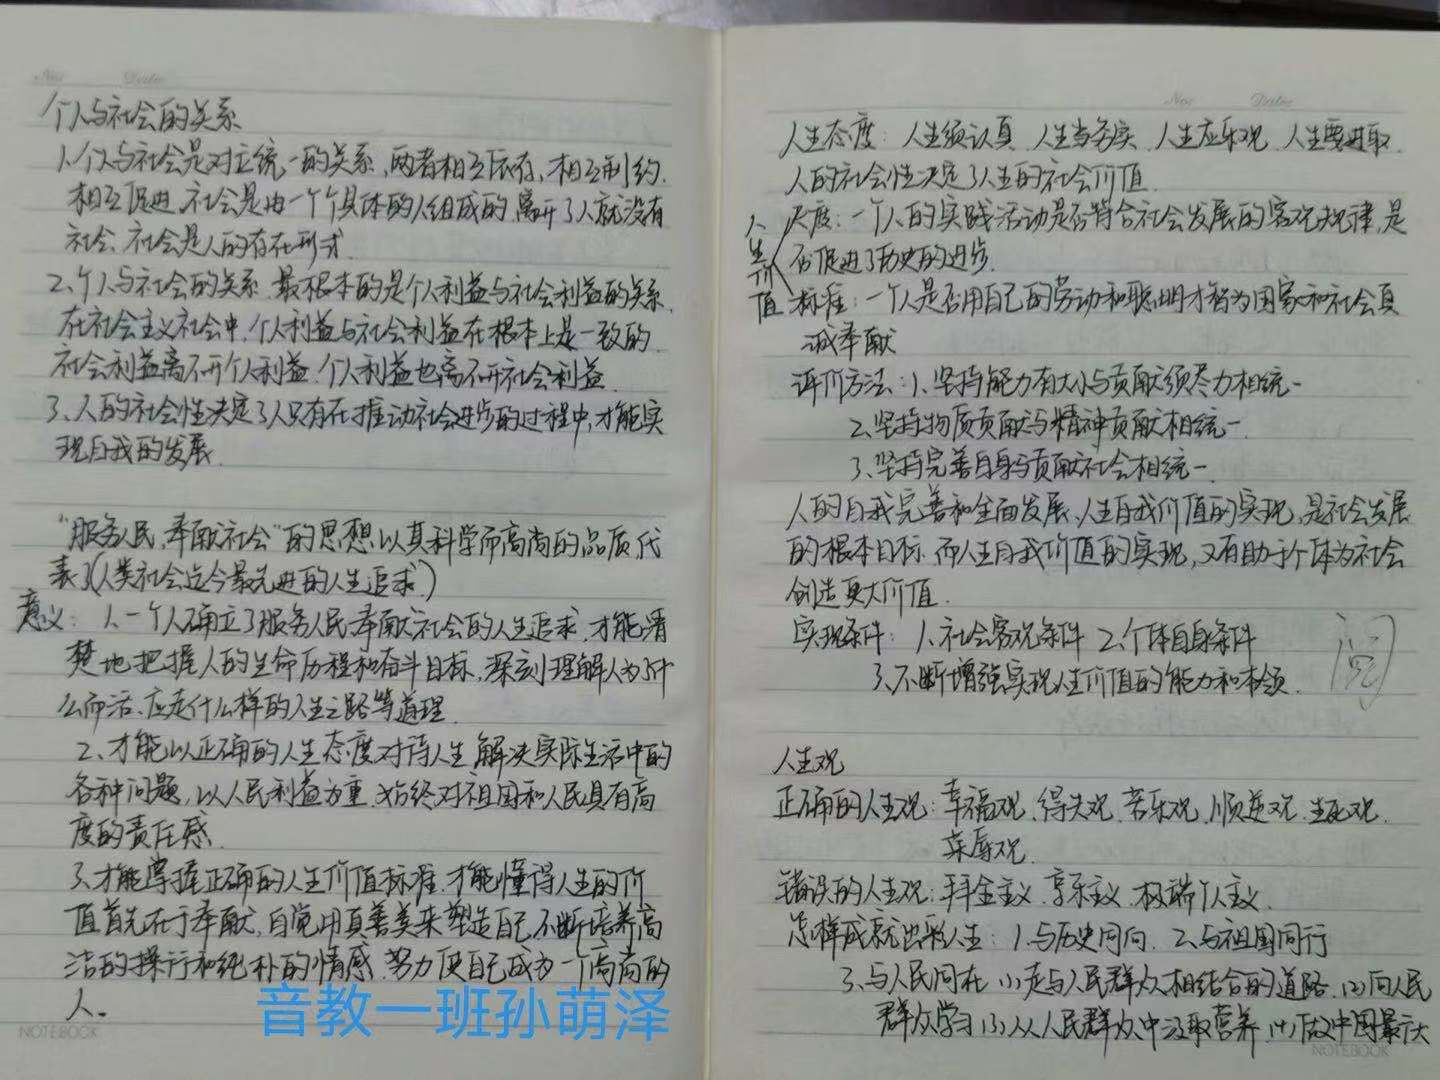 No:
Date
个人与社会的关系
1、个人与社会是对立统一的关系,两者相互依存,相互制约,
相互促进,社会是由一个个具体的人组成的,离开了人就没有
社会,社会是人的存在形式.
2、个人与社会的关系,最根本的是个人利益与社会利益的关系.
在社会主义社会中,个人利益与社会利益在根本上是一致的.
社会利益离不开个人利益,个人利益也离不开社会利益.
3、人的社会性决定了人只有在推动社会进步的过程中,才能实
现自我的发展.
"服务人民,奉献社会"的思想以其科学而高尚的品质代
表了(人类社会迄今最先进的人生追求)
意义: 1、一个人确立了服务人民奉献社会的人生追求,才能清
楚地把握人的生命历程和奋斗目标,深刻理解人为什
么而活、应走什么样的人生之路等道理.
2、才能以正确的人生态度对待人生,解决实际生活中的
各种问题,以人民利益为重,始终对祖国和人民具有高
度的责任感.
3、才能掌握正确的人生价值标准,才能懂得人生的价
值首先在于奉献,自觉用真善美来塑造自己,不断培养高
洁的操行和纯朴的情感,努力使自己成为一个高尚的
人。
音教一班孙萌泽
NOTEBOOK
No:
Date:
人生态度: 人生须认真、人生当务实、人生应乐观、人生要进取.
人的社会性决定了人生的社会价值.
人生价值
尺度: 一个人的实践活动是否符合社会发展的客观规律,是
否促进了历史的进步.
标准: 一个人是否用自己的劳动和聪明才智为国家和社会真
诚奉献
评价方法: 1、坚持能力有大小与贡献须尽力相统一
2、坚持物质贡献与精神贡献相统一.
3、坚持完善自身与贡献社会相统一.
人的自我完善和全面发展、人生自我价值的实现,是社会发展
的根本目标,而人生自我价值的实现,又有助于个体为社会
创造更大价值.
实现条件: 1、社会客观条件 2、个体自身条件
3、不断增强实现人生价值的能力和本领.
人生观
正确的人生观: 幸福观、得失观、苦乐观、顺逆观、生死观、
荣辱观.
错误的人生观: 拜金主义、享乐主义、极端个人主义.
怎样成就出彩人生: 1、与历史同向、 2、与祖国同行
3、与人民同在 (1)走与人民群众相结合的道路 (2)向人民
群众学习 (3)从人民群众中汲取营养 (4)做中国最广大
NOTEBOOK